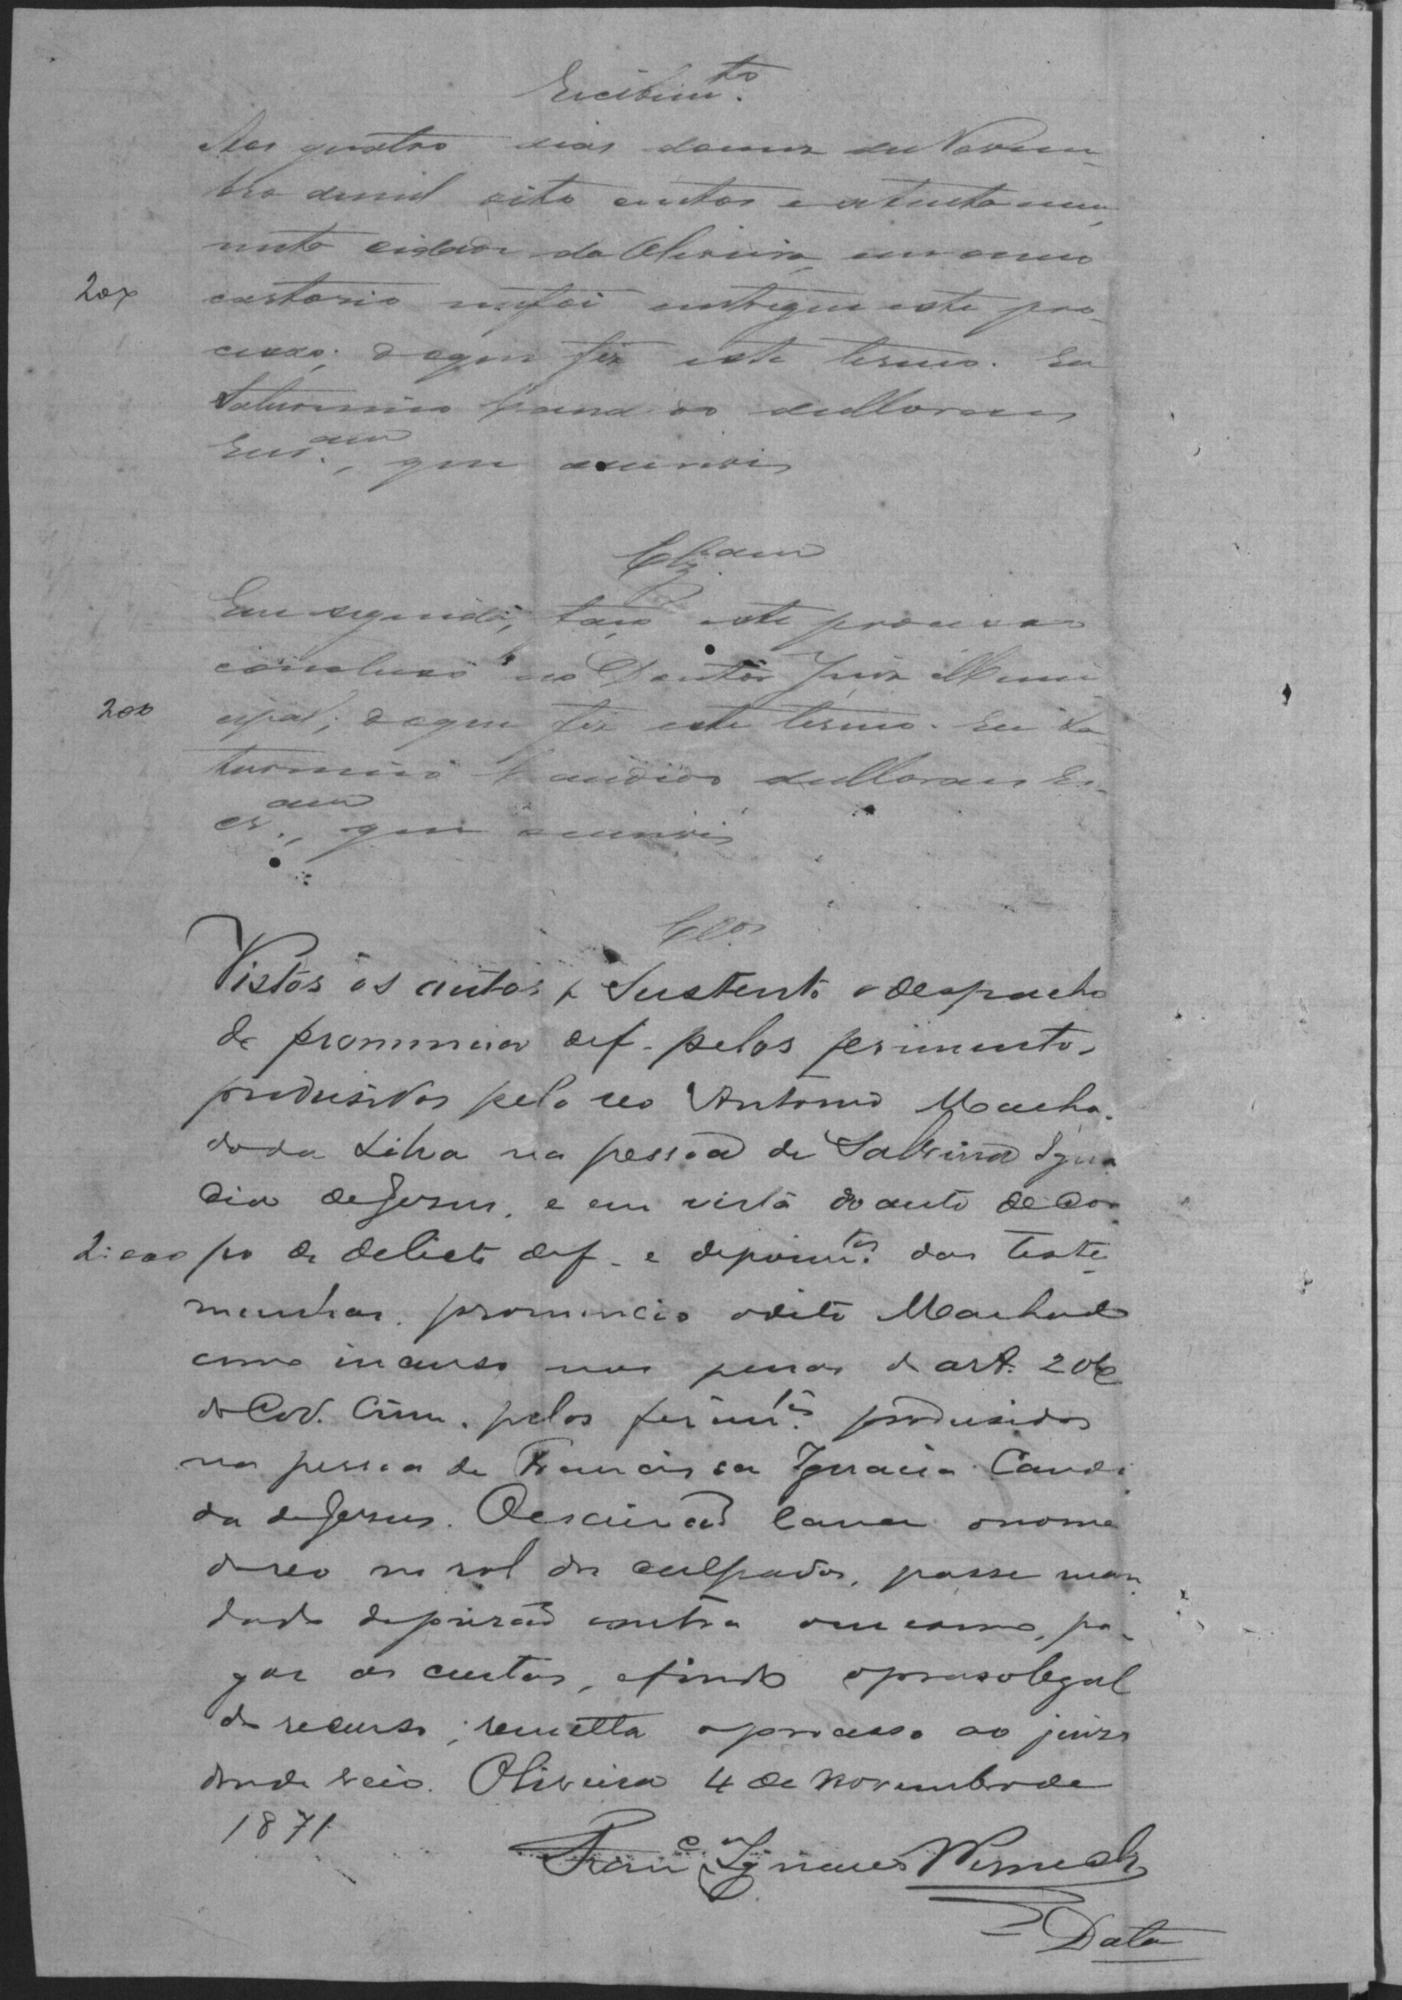 Recebim.to
Aos quatro dias do mez de Novem-
bro de mil oito centos e setenta e um,
nesta cidade da Oliveira, em meu
cartorio me foi entregue este pro-
200
cesso; do que fiz este termo. Eu
Saturnino Candido de Moraes
Escr.am, que escrevi
Clz.am
Em seguida, faço este processo
concluso ao Doutor Juiz Muni
200
cipal; do que fiz este termo. Eu Sa
turnino Candido de Moraes Es-
cr.am, que escrevi
Clos.
Vistos os autos, Sustento o despacho
de pronuncia de f. pelos ferimentos
produsidos pelo reo Antonio Macha-
do da Silva na pessoa de Salvina Igna
cia de Jesus, e em vista do auto de cor
2:000
po de delicto de f. e depoim.tos das teste
munhas, pronuncio o dito Machado
como incurso nas penas do art. 206
do Cod. Crim. pelos ferim.tos produsidos
na pessoa de Francisca Ignacia Candi
da de Jesus. O escrivão lance o nome
do reo no rol dos culpados, passe man
dado de prisão contra o mesmo, pa-
gar as custas, e findo o praso legal
do recurso, remetta o processo ao juizo
donde veio. Oliveira 4 de Novembro de
1871
Fran.co Ignacio Werneck
Data